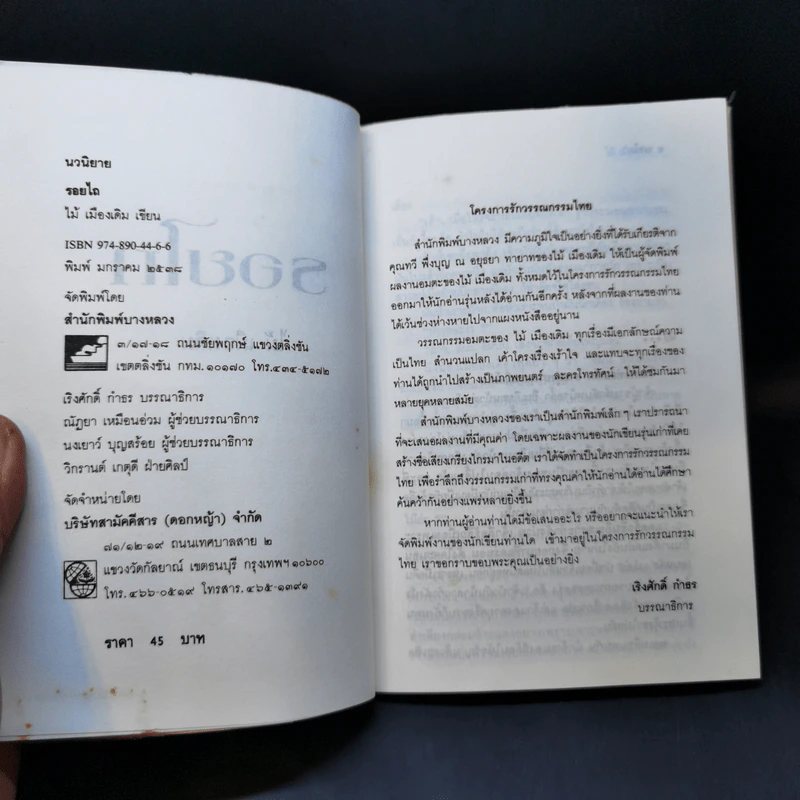 นวนิยาย
รอยไถ
ไม้ เมืองเดิม เขียน
ISBN 974-890-44-6-6
พิมพ์ มกราคม ๒๕๓๘
จัดพิมพ์โดย
สำนักพิมพ์บางหลวง
๓/๑๗-๑๘ ถนนชัยพฤกษ์ แขวงตลิ่งชัน
เขตตลิ่งชัน กทม. ๑๐๑๗๐ โทร.๔๓๔-๕๑๗๒
เริงศักดิ์ กำธร บรรณาธิการ
ณัฏยา เหมือนอ่วม ผู้ช่วยบรรณาธิการ
นงเยาว์ บุญสร้อย ผู้ช่วยบรรณาธิการ
วิกรานต์ เกตุดี ฝ่ายศิลป์
จัดจำหน่ายโดย
บริษัทสามัคคีสาร (ดอกหญ้า) จำกัด
๗๑/๑๒-๑๙ ถนนเทศบาลสาย ๒
แขวงวัดกัลยาณ์ เขตธนบุรี กรุงเทพฯ ๑๐๖๐๐
โทร.๔๖๖-๐๕๑๙ โทรสาร.๔๖๕-๑๓๙๑
ราคา 45 บาท
โครงการรักวรรณกรรมไทย
สำนักพิมพ์บางหลวง มีความภูมิใจเป็นอย่างยิ่งที่ได้รับเกียรติจาก
คุณทวี พึ่งบุญ ณ อยุธยา ทายาทของไม้ เมืองเดิม ให้เป็นผู้จัดพิมพ์
ผลงานอมตะของไม้ เมืองเดิม ทั้งหมดไว้ในโครงการรักวรรณกรรมไทย
ออกมาให้นักอ่านรุ่นหลังได้อ่านกันอีกครั้ง หลังจากที่ผลงานของท่าน
ได้เว้นช่วงห่างหายไปจากแผงหนังสืออยู่นาน
วรรณกรรมอมตะของ ไม้ เมืองเดิม ทุกเรื่องมีเอกลักษณ์ความ
เป็นไทย สำนวนแปลก เค้าโครงเรื่องเร้าใจ และแทบจะทุกเรื่องของ
ท่านได้ถูกนำไปสร้างเป็นภาพยนตร์ ละครโทรทัศน์ ให้ได้ชมกันมา
หลายยุคหลายสมัย
สำนักพิมพ์บางหลวงของเราเป็นสำนักพิมพ์เล็ก ๆ เราปรารถนา
ที่จะเสนอผลงานที่มีคุณค่า โดยเฉพาะผลงานของนักเขียนรุ่นเก่าที่เคย
สร้างชื่อเสียงเกรียงไกรมาในอดีต เราได้จัดทำเป็นโครงการรักวรรณกรรม
ไทย เพื่อรำลึกถึงวรรณกรรมเก่าที่ทรงคุณค่าให้นักอ่านได้อ่านได้ศึกษา
ค้นคว้ากันอย่างแพร่หลายยิ่งขึ้น
หากท่านผู้อ่านท่านใดมีข้อเสนออะไร หรืออยากจะแนะนำให้เรา
จัดพิมพ์งานของนักเขียนท่านใด เข้ามาอยู่ในโครงการรักวรรณกรรม
ไทย เราขอกราบขอบพระคุณเป็นอย่างยิ่ง
เริงศักดิ์ กำธร
บรรณาธิการ